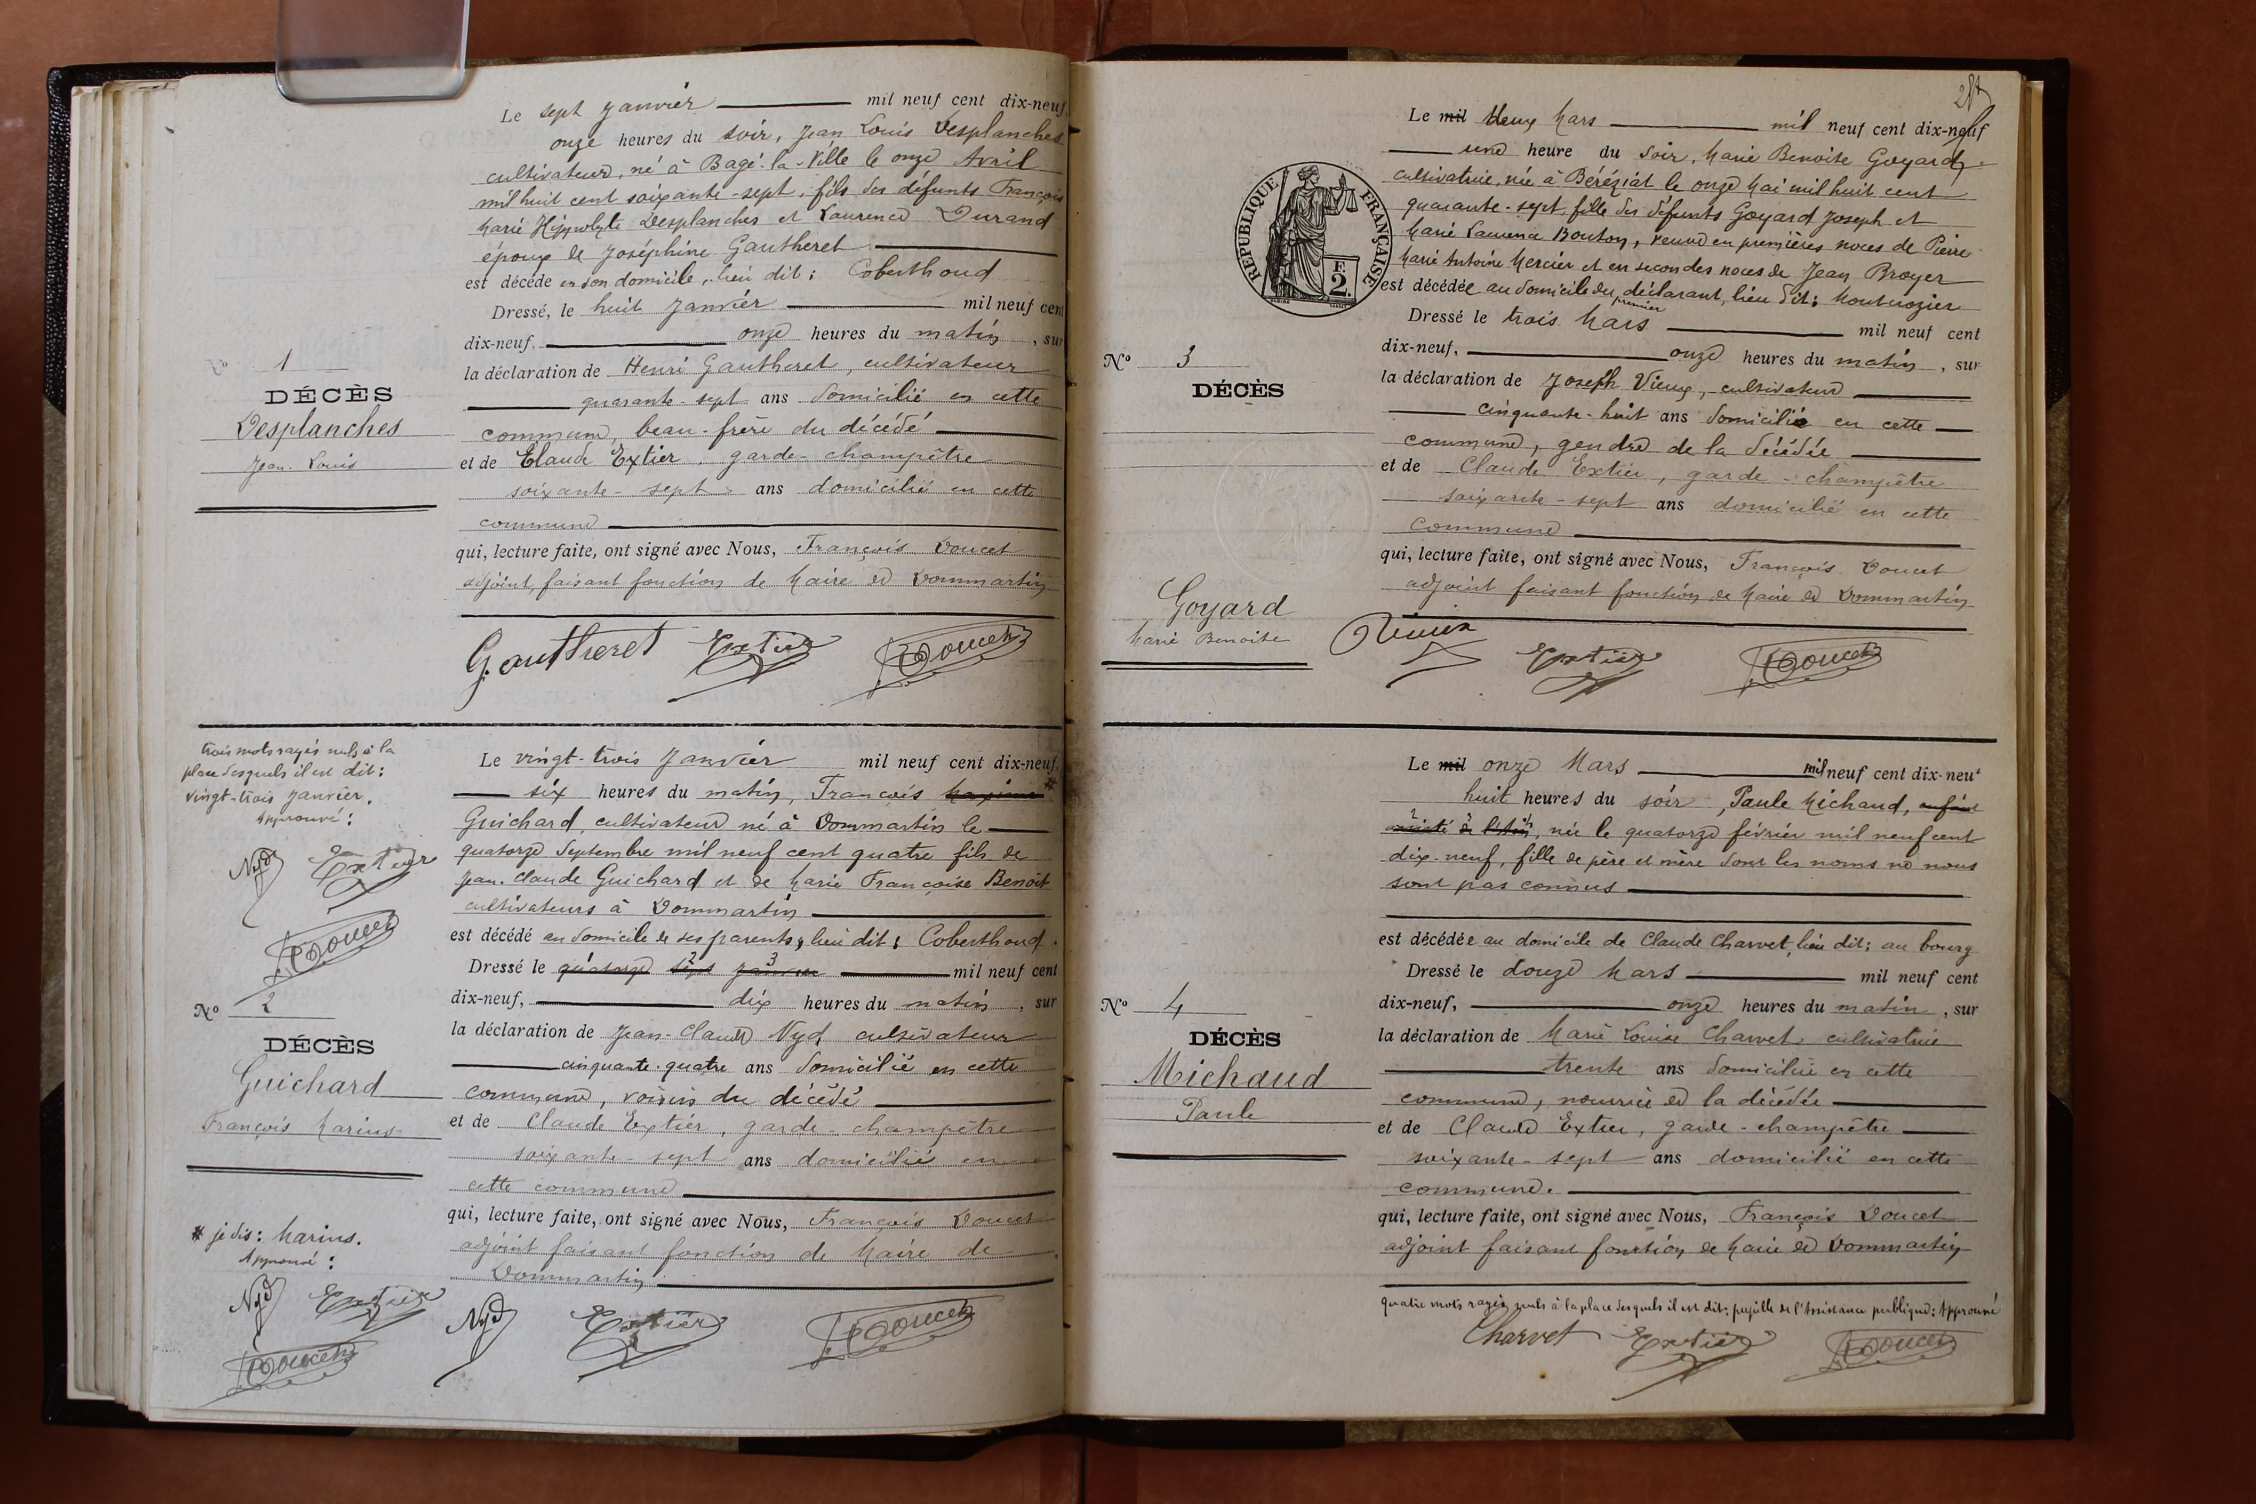 Le sept Janvier mil neuf cent dix-neuf,
onze heures du soir, Jean Louis Desplanches
cultivateur, né à Bagé-la-Ville le onze Avril
mil huit cent soixante-sept, fils des défunts François
Marie Hippolyte Desplanches et Laurence Durand
époux de Joséphine Gautheret
est décédé en son domicile, lieu dit: Coberthoud
Dressé, le huit Janvier mil neuf cent
dix-neuf, onze heures du matin, sur
la déclaration de Henri Gautheret, cultivateur
quarante-sept ans domicilié en cette
commune, beau-frère du décédé
et de Claude Extier, garde-champêtre
soixante-sept ans domicilié en cette
commune
qui, lecture faite, ont signé avec Nous, François Doucet
adjoint, faisant fonction de Maire de Dommartin
Gautheret Extier Doucet
No 1
DÉCÈS
Desplanches
Jean-Louis
trois mots rayés nuls à la
place desquels il est dit:
vingt-trois Janvier.
Approuvé:
Nyd Extier
Doucet
No 2
DÉCÈS
Guichard
François Marius
* je dis: Marius.
Approuvé:
Nyd Extier
Doucet
Le vingt-trois Janvier mil neuf cent dix-neuf,
six heures du matin, François *
Guichard, cultivateur né à Dommartin le
quatorze Septembre mil neuf cent quatre fils de
Jean-Claude Guichard et de Marie Françoise Benoit
cultivateurs à Dommartin
est décédé au domicile de ses parents, lieu dit: Coberthoud.
Dressé le quatorze sept janvier mil neuf cent
dix-neuf, dix heures du matin, sur
la déclaration de Jean-Claude Nyd, cultivateur
cinquante-quatre ans domicilié en cette
commune, voisin du décédé
et de Claude Extier, garde-champêtre
soixante-sept ans domicilié en
cette commune
qui, lecture faite, ont signé avec Nous, François Doucet
adjoint faisant fonction de Maire de
Dommartin
Nyd Extier Doucet
RÉPUBLIQUE FRANÇAISE
E
2.
Le mil deux Mars mil neuf cent dix-neuf
une heure du soir, Marie Benoite Goyard,
cultivatrice, née à Béréziat le onze Mai mil huit cent
quarante-sept, fille des défunts Goyard Joseph et
Marie Laurence Bouton, veuve en premières noces de Pierre
Marie Antoine Mercier et en secondes noces de Jean Broyer
est décédée au domicile du premier déclarant, lieu dit: Montcrozier
Dressé le trois Mars mil neuf cent
dix-neuf, onze heures du matin, sur
la déclaration de Joseph Vieux, cultivateur
cinquante-huit ans domicilié en cette
commune, gendre de la décédée
et de Claude Extier, garde-champêtre
soixante-sept ans domicilié en cette
commune
qui, lecture faite, ont signé avec Nous, François Doucet
adjoint faisant fonction de Maire de Dommartin
Vieux Extier Doucet
No 3
DÉCÈS
Goyard
Marie Benoite
Le mil onze Mars mil neuf cent dix-neuf
huit heures du soir, Paule Michaud,
née le quatorze février mil neuf cent
dix-neuf, fille de père et mère dont les noms ne nous
sont pas connus
est décédée au domicile de Claude Charvet, lieu dit: au bourg
Dressé le douze Mars mil neuf cent
dix-neuf, onze heures du matin, sur
la déclaration de Marie Louise Charvet, cultivatrice
trente ans domiciliée en cette
commune, nourrice de la décédée
et de Claude Extier, garde-champêtre
soixante-sept ans domicilié en cette
commune.
qui, lecture faite, ont signé avec Nous, François Doucet
adjoint faisant fonction de Maire de Dommartin
quatre mots rayés nuls à la place desquels il est dit: pupille de l'Assistance publique: Approuvé
Charvet Extier Doucet
No 4
DÉCÈS
Michaud
Paule